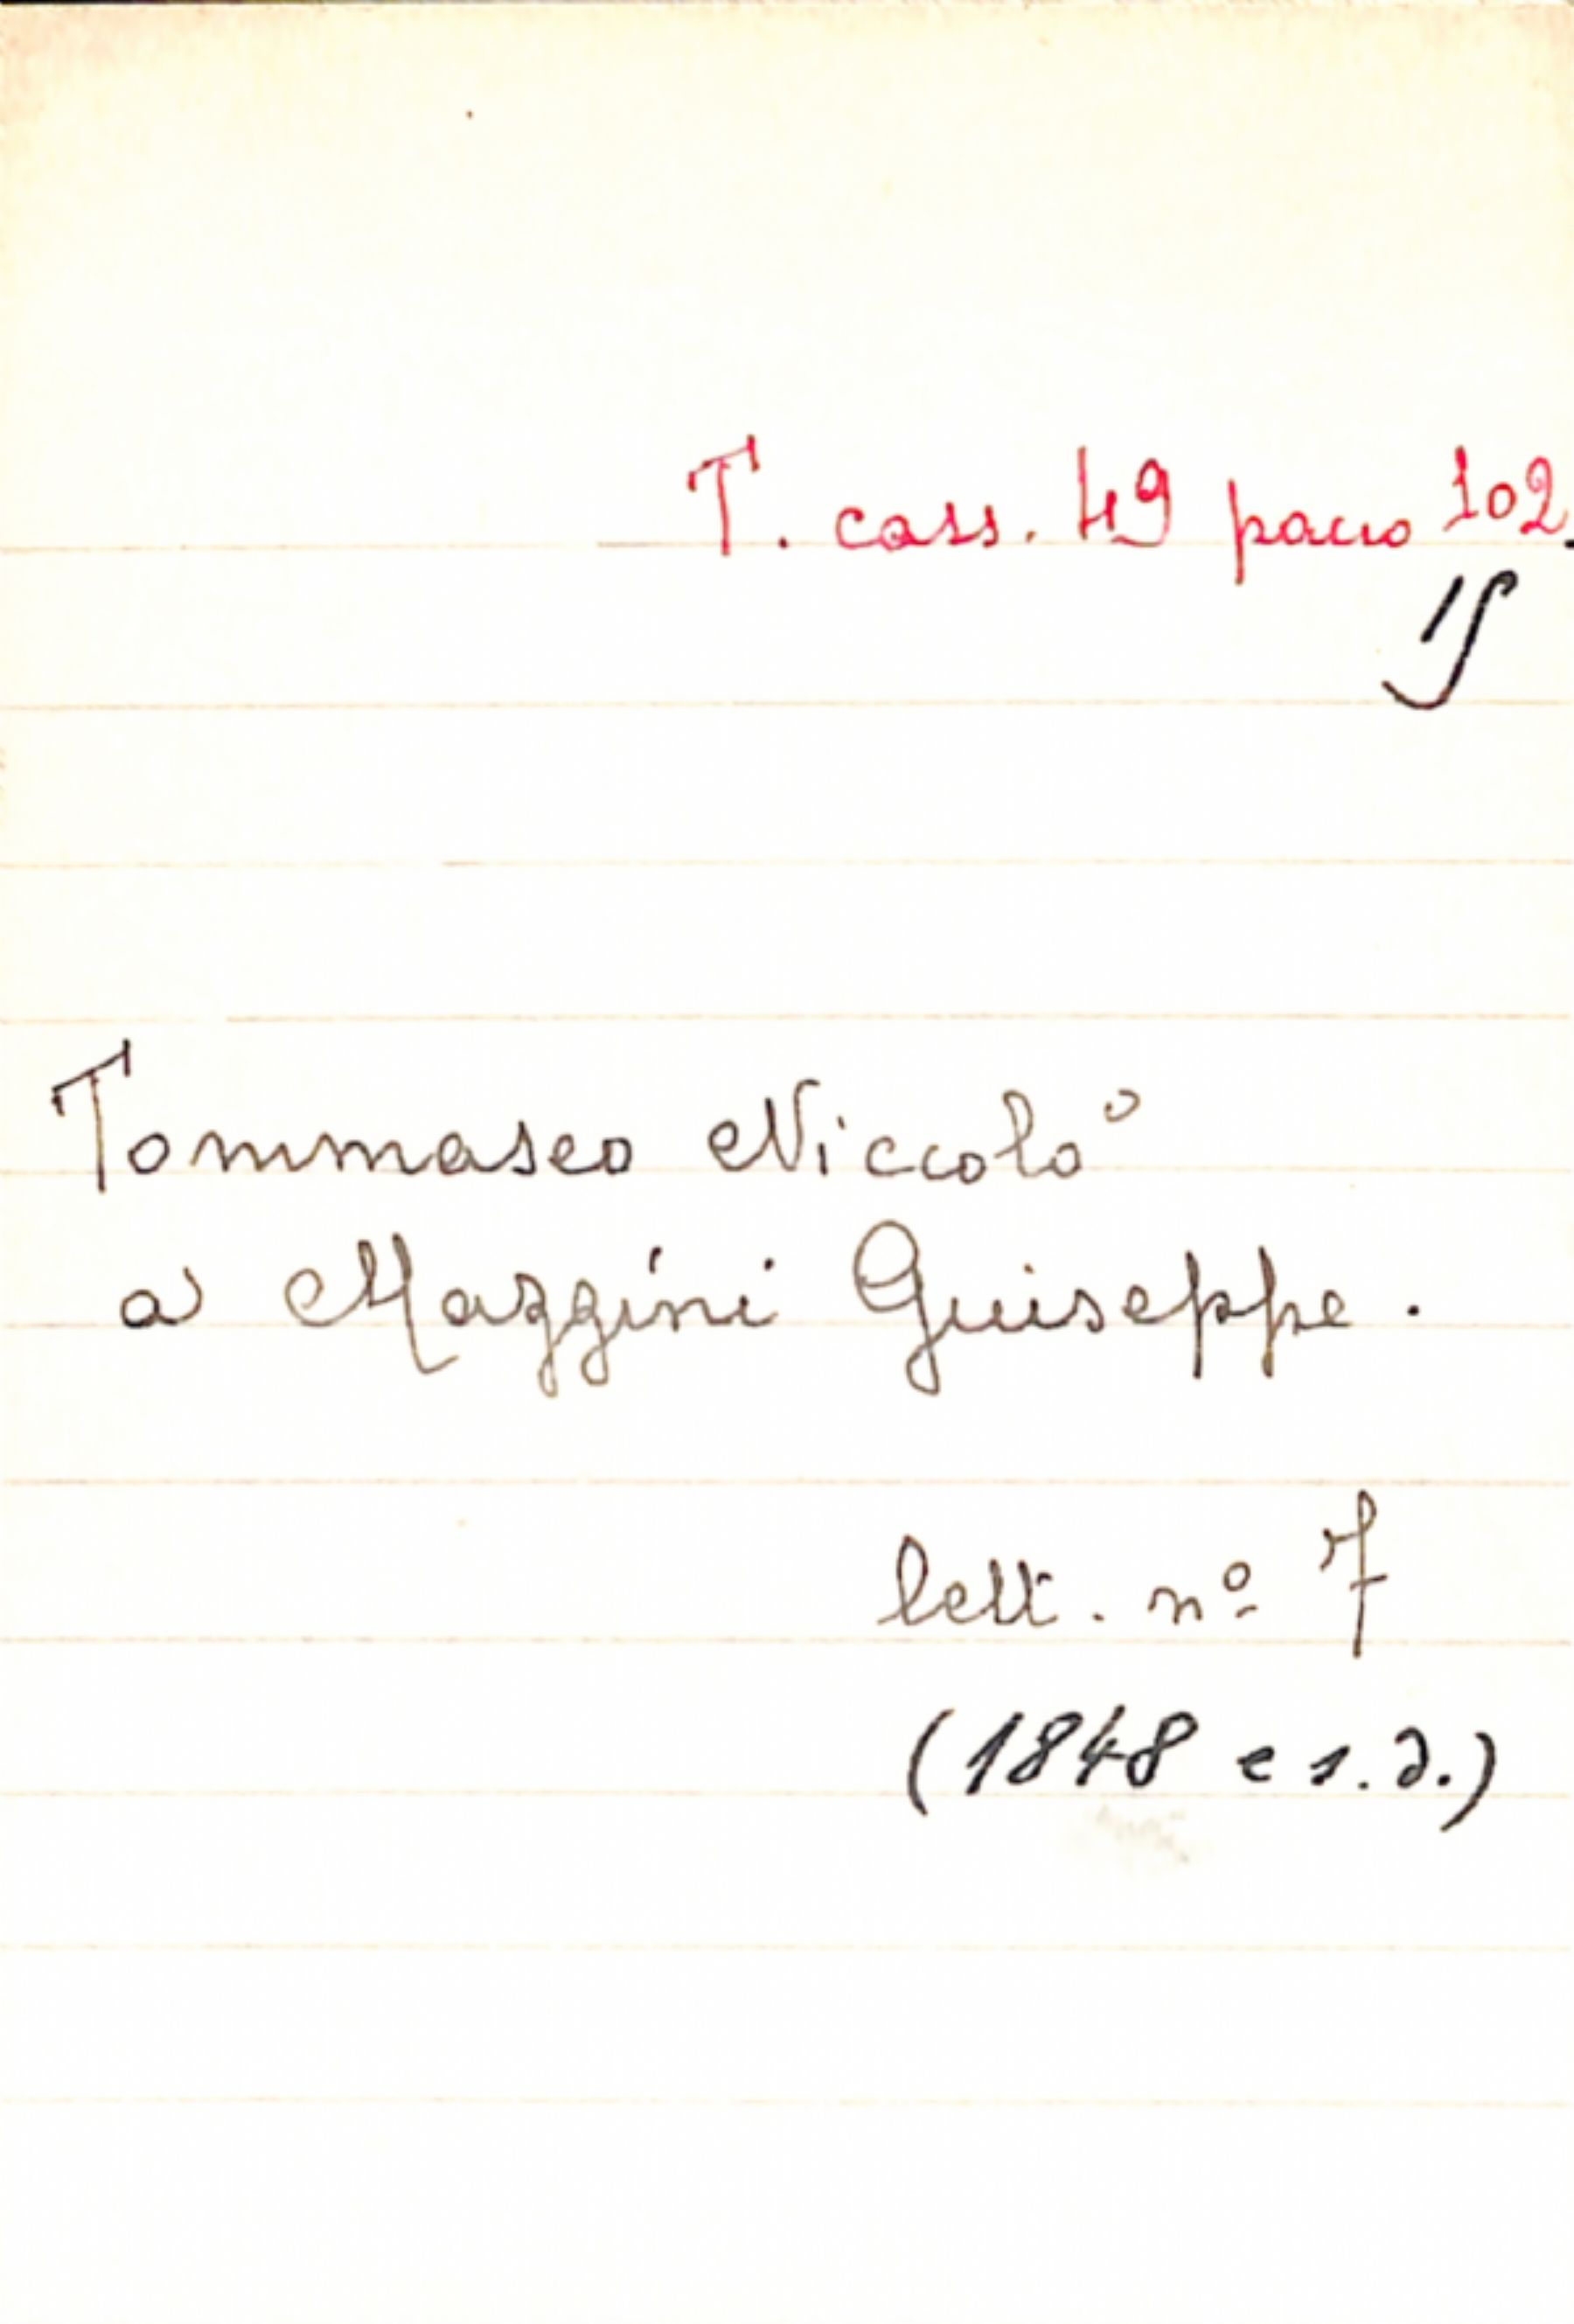 T. cass. 49 pacco 102.
15
Tommaseo Niccolo°
a Mazzini Giuseppe.
lett. nº 7
(1848 e s.d.)